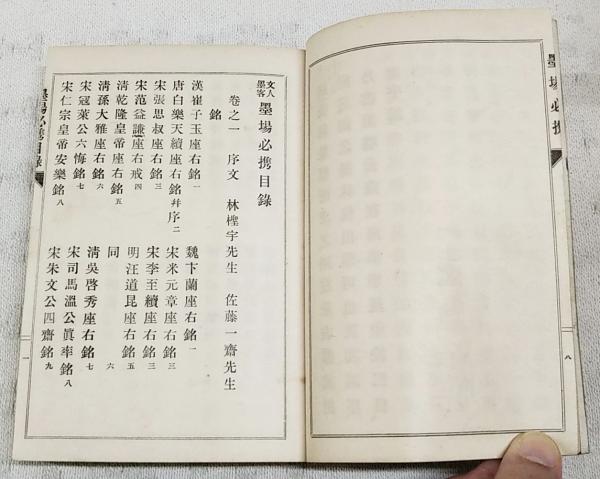 墨場必携
八
文人墨客 墨場必携目録
卷之一 序文 林檉宇先生 佐藤一齋先生
銘
漢崔子玉座右銘 一 魏卞蘭座右銘 一
唐白樂天續座右銘并序 二 宋米元章座右銘 三
宋張思叔座右銘 三 宋李至續座右銘 三
宋范益謙座右戒 四 明汪道昆座右銘 五
清乾隆皇帝座右銘 五 同 六
清孫大雅座右銘 六 清吳啓秀座右銘 七
宋寇萊公六悔銘 七 宋司馬溫公眞率銘 八
宋仁宗皇帝安樂銘 八 宋朱文公四齋銘 九
墨場必携目錄
一